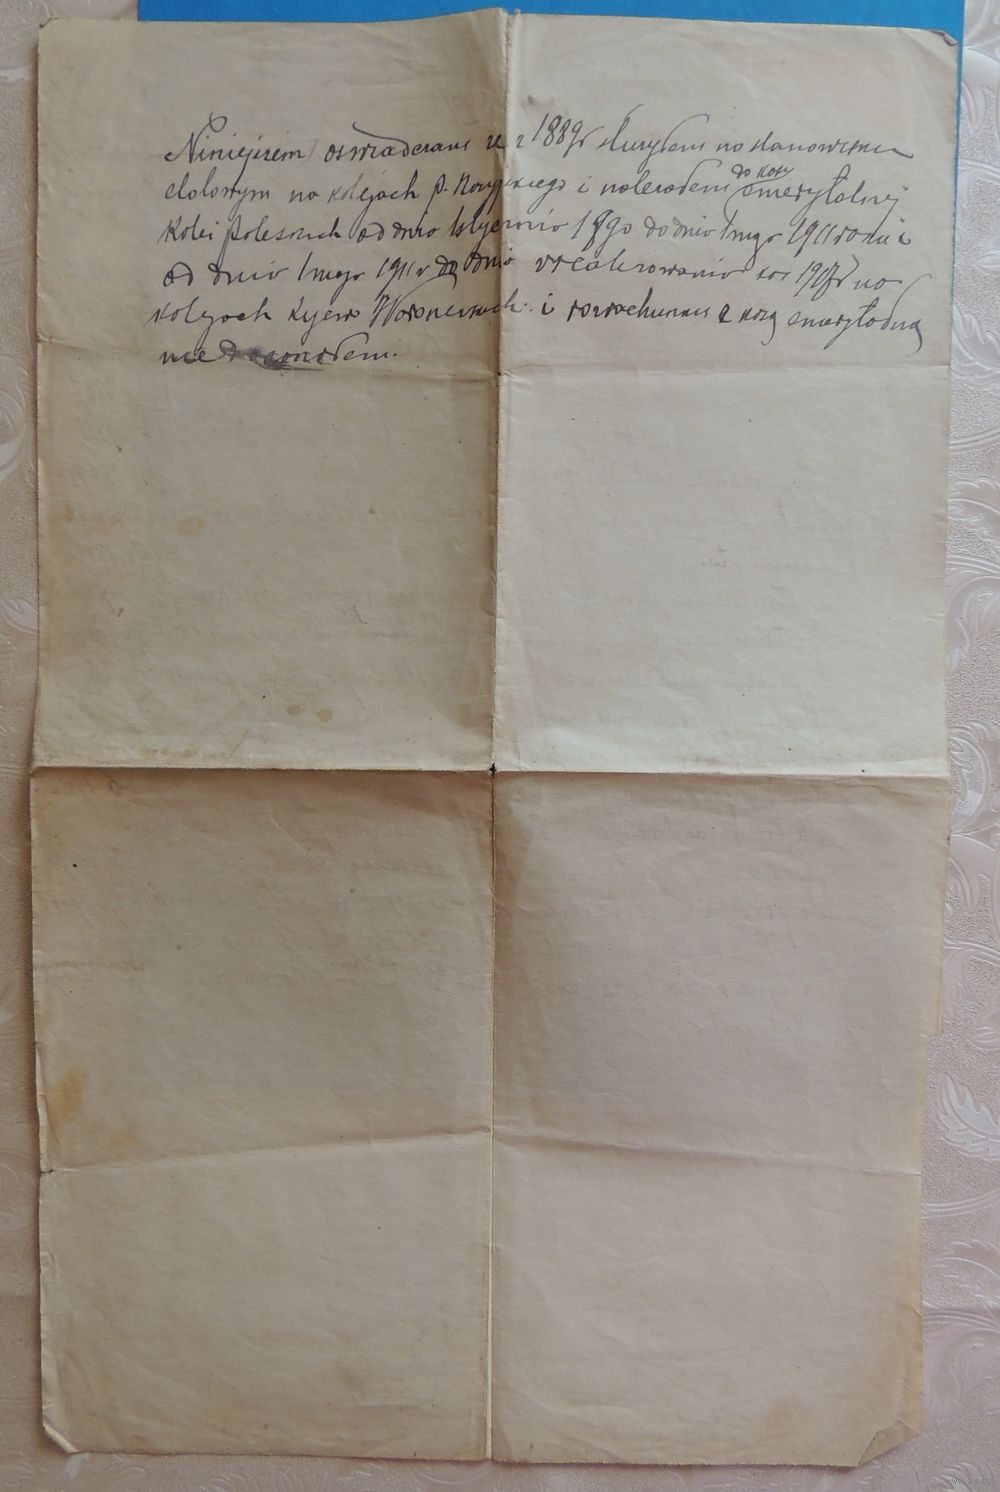 Niniejszem oswiadczam ze z 1889r sluzylem na stanowisku
etatowym na kolejach p. Rosyjskiego i nalezalem do kasy emerytalnej
Kolei Poleskich od dnia 1 stycznia 1890 do dnia 1 maja 1911 roku i
od dnia 1 maja 1911 r do dnia 1918 r na
kolejach Kijew Woroneskich i rozrachunku z kasą emerytalną
nie